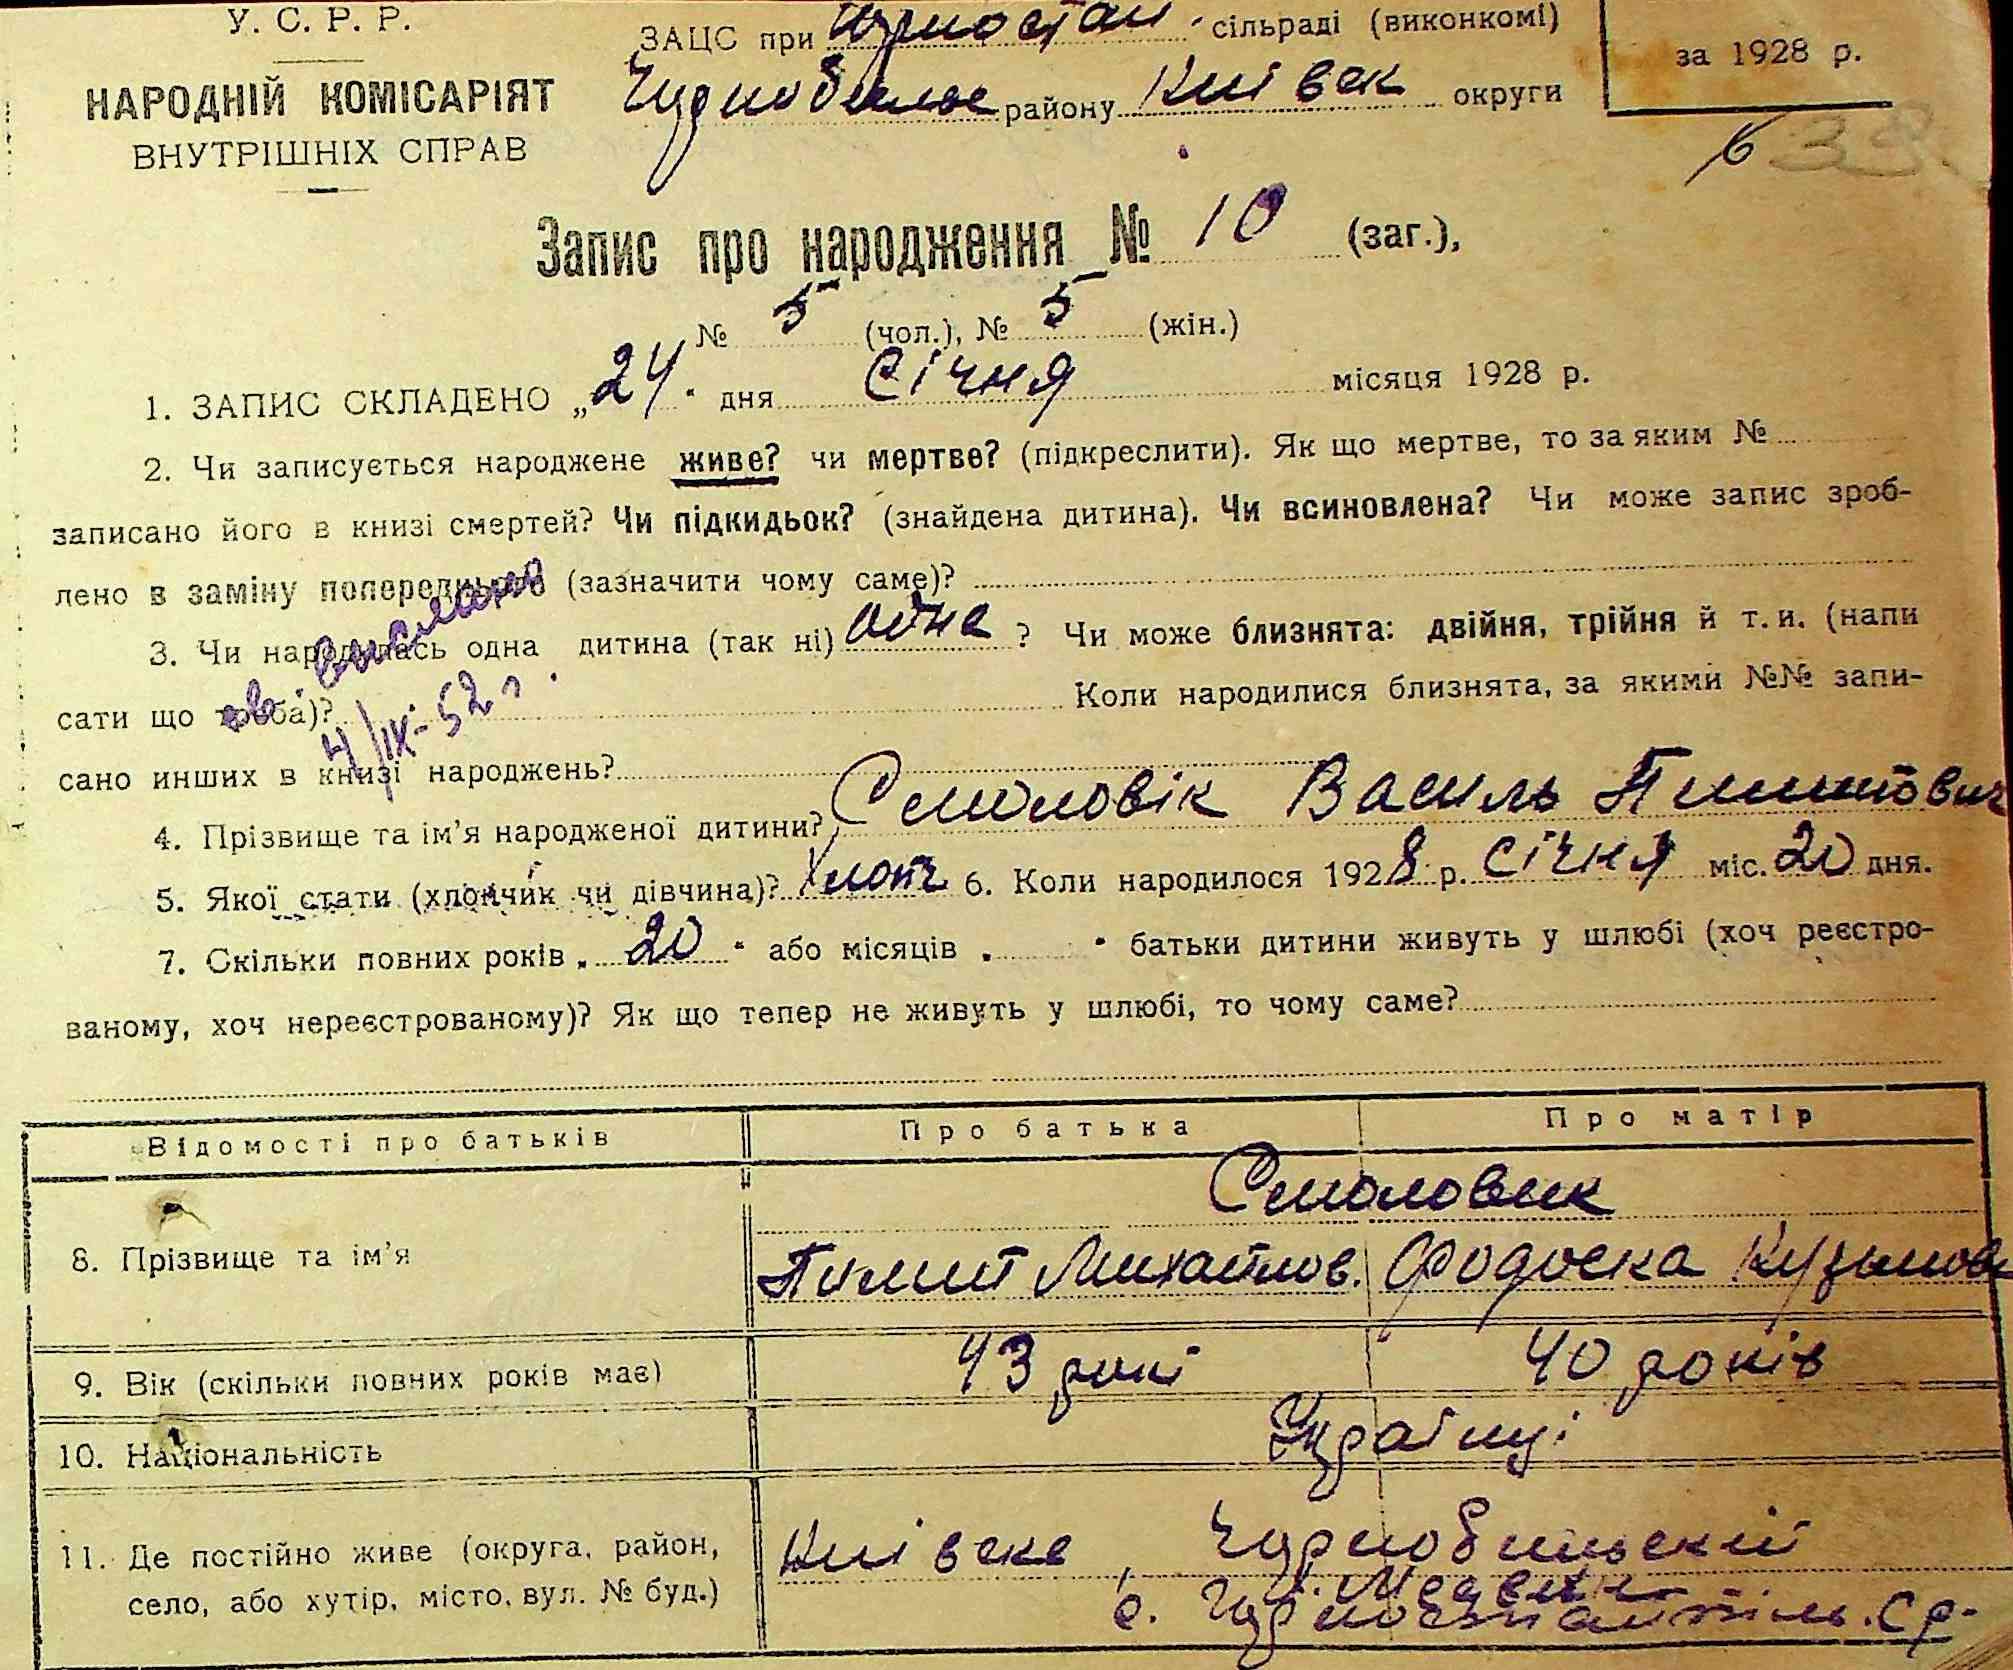 У. С. Р. Р.
НАРОДНІЙ КОМІСАРІЯТ
ВНУТРІШНІХ СПРАВ
ЗАЦС при сільраді (виконкомі)
району Київськ округи
за 1928 р.
Запис про народження № 10 (заг.),
№ 5 (чол.), № 5 (жін.)
1. ЗАПИС СКЛАДЕНО „24" дня Січня місяця 1928 р.
2. Чи записується народжене живе? чи мертве? (підкреслити). Як що мертве, то за яким №
записано його в книзі смертей? Чи підкидьок? (знайдена дитина). Чи всиновлена? Чи може запис зроб-
лено в заміну попереднього (зазначити чому саме)?
3. Чи народилась одна дитина (так ні) одна ? Чи може близнята: двійня, трійня й т. и. (напи
сати що треба)? Коли народилися близнята, за якими №№ запи-
4/IX-52 г.
сано инших в книзі народжень?
4. Прізвище та ім'я народженої дитини? Смоловік Василь Пимитович
5. Якої стати (хлопчик чи дівчина)? Хлопч 6. Коли народилося 1928 р. Січня міс. 20 дня.
7. Скільки повних років „20" або місяців „ " батьки дитини живуть у шлюбі (хоч реєстро-
ваному, хоч нереєстрованому)? Як що тепер не живуть у шлюбі, то чому саме?
Відомості про батьків Про батька Про матір
8. Прізвище та ім'я Смоловик
Пимит Михайлов. Федоска Кузьмов
9. Вік (скільки повних років має) 43 рокі 40 років
10. Національність Українці
11. Де постійно живе (округа, район,
село, або хутір, місто, вул. № буд.)
Київске, Чорнобильский
с. ср.